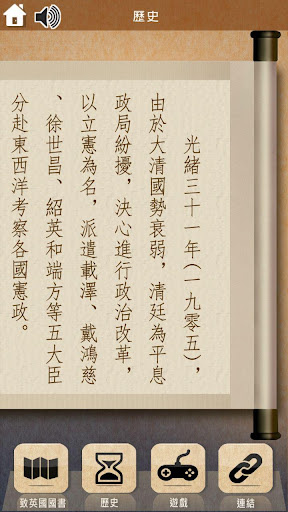 歷史
光緒三十一年(一九零五)，
由於大清國勢衰弱，清廷為平息
政局紛擾，決心進行政治改革，
以立憲為名，派遣載澤、戴鴻慈
、徐世昌、紹英和端方等五大臣
分赴東西洋考察各國憲政。
致英國國書
歷史
遊戲
連結